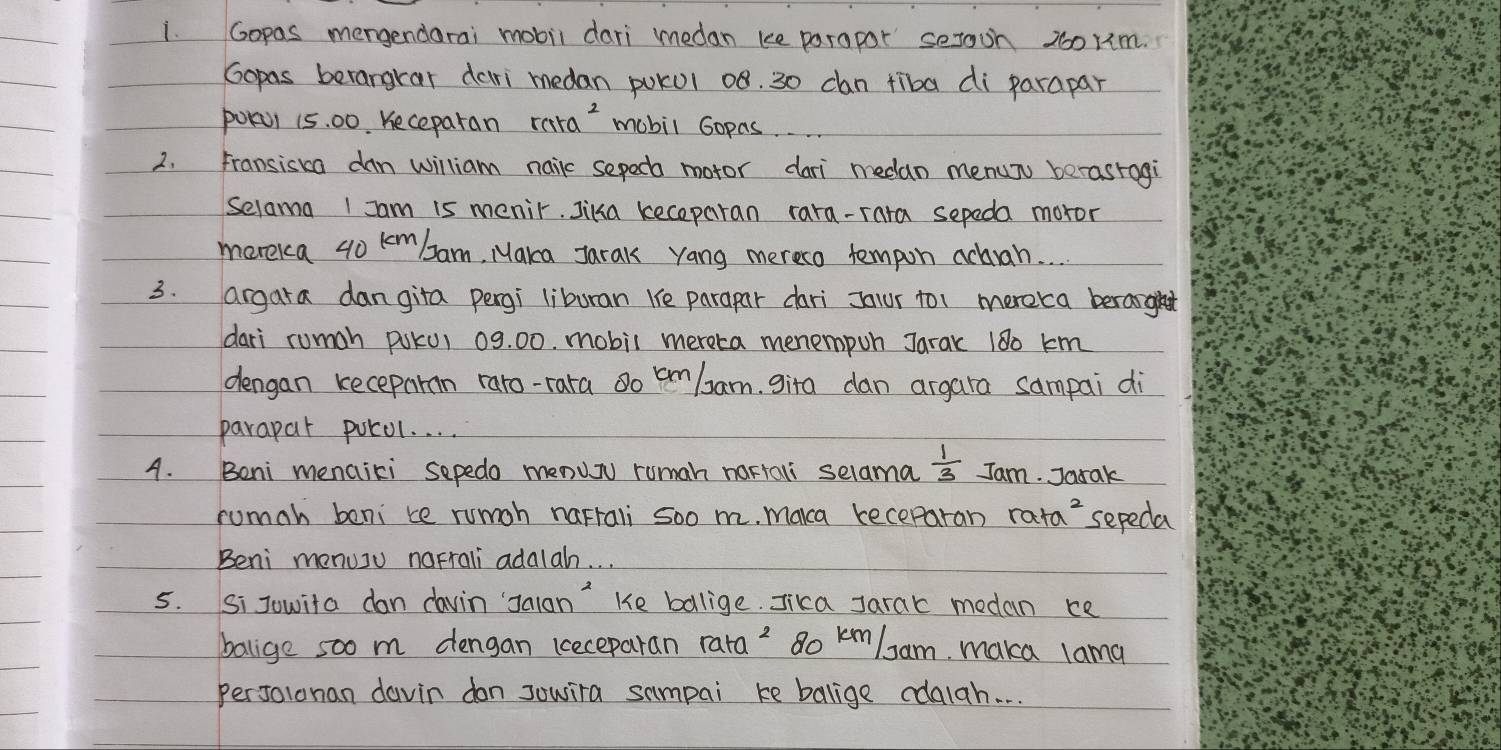 1. Gopas mengendarai mobil dari medan ke parapat sejauh 260 km.
Gopas berangkat dari medan pukul 08.30 dan tiba di parapat
pukul 15.00. Keceparan rata² mobil Gopas....
2. Fransiska dan william naik sepeda motor dari medan menuju berastagi
selama 1 Jam 15 menit. Jika keceparan rata-rata sepeda motor
mereka 40 km/Jam. Maka Jarak yang mereca tempuh adalah....
3. argata dan gita pergi liburan ke parapat dari Jalur tol mereka berangkat
dari rumah pukul 09.00. mobil mereka menempuh Jarak 180 km
dengan keceparan rata-rata 80 km/Jam. gita dan argata sampai di
parapat pukul....
4. Beni menaiki sepeda menuju rumah naftali selama 1/3 Jam. Jarak
rumah beni ke rumah naftali 500 m. Maka keceparan rata² sepeda
Beni menuju naftali adalah...
5. Si Jowita dan davin Jalan² ke balige. Jika Jarak medan ke
balige 500 m dengan keceparan rata² 80 km/Jam. maka lama
perjalanan davin dan Jowita sampai ke balige adalah...